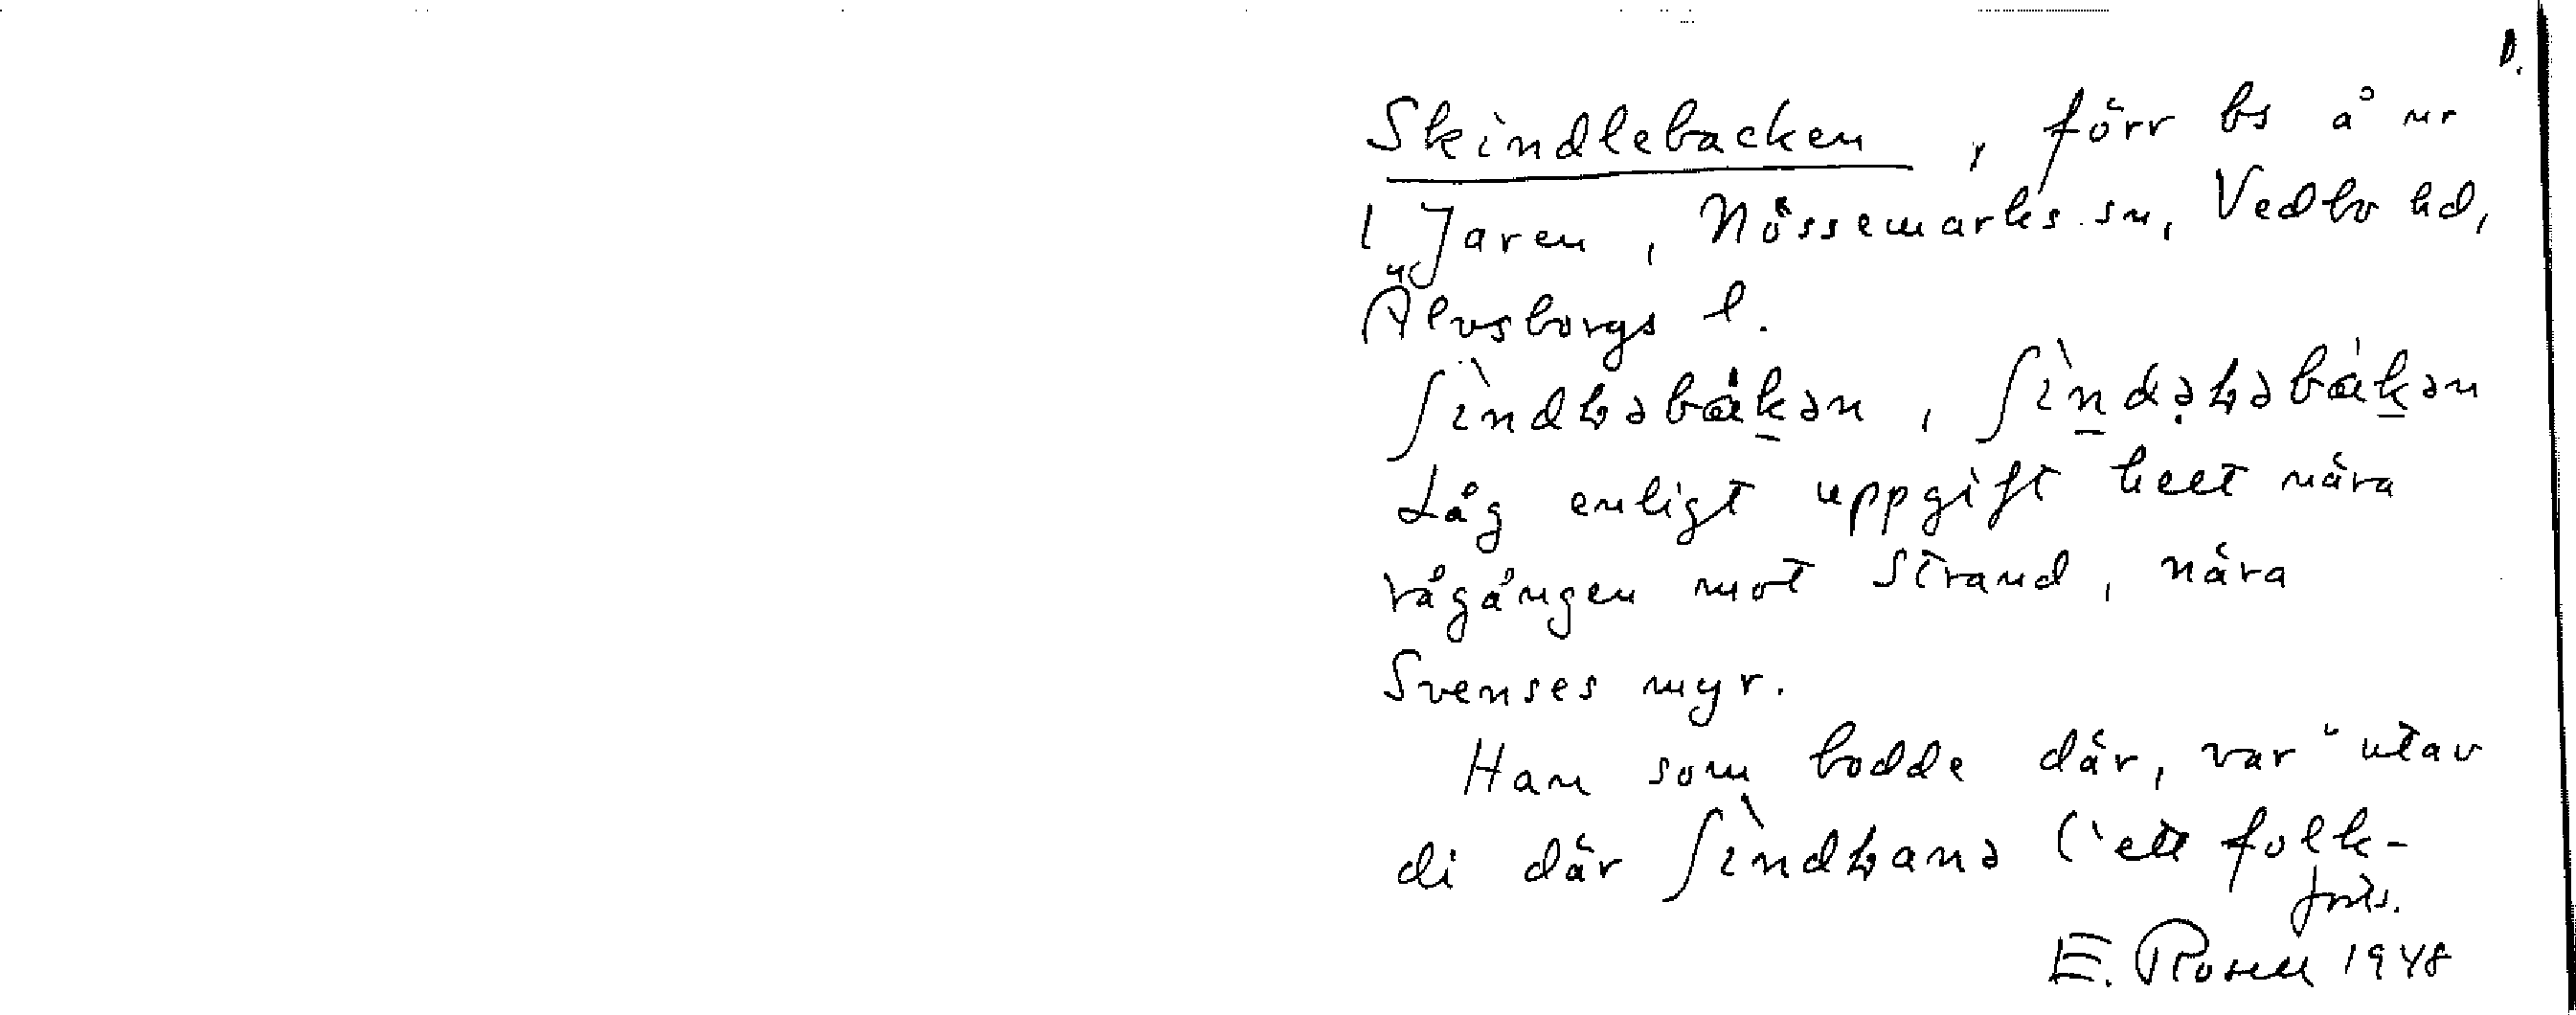 D.
Skindlebacken, förr bs å nr
1 Jaren, Nössemarks sn, Vedbo hd,
Älvsborgs l.
ʃìndⱡəbák̲ən, ʃìn̲də̣ⱡəbák̲ən
Låg enligt uppgift helt nära
rågången mot Strand, nära
Svenses myr.
Han som bodde där, var "utav
di där ʃìndⱡanə (ett folk-
forts.
E. Rosell 1948